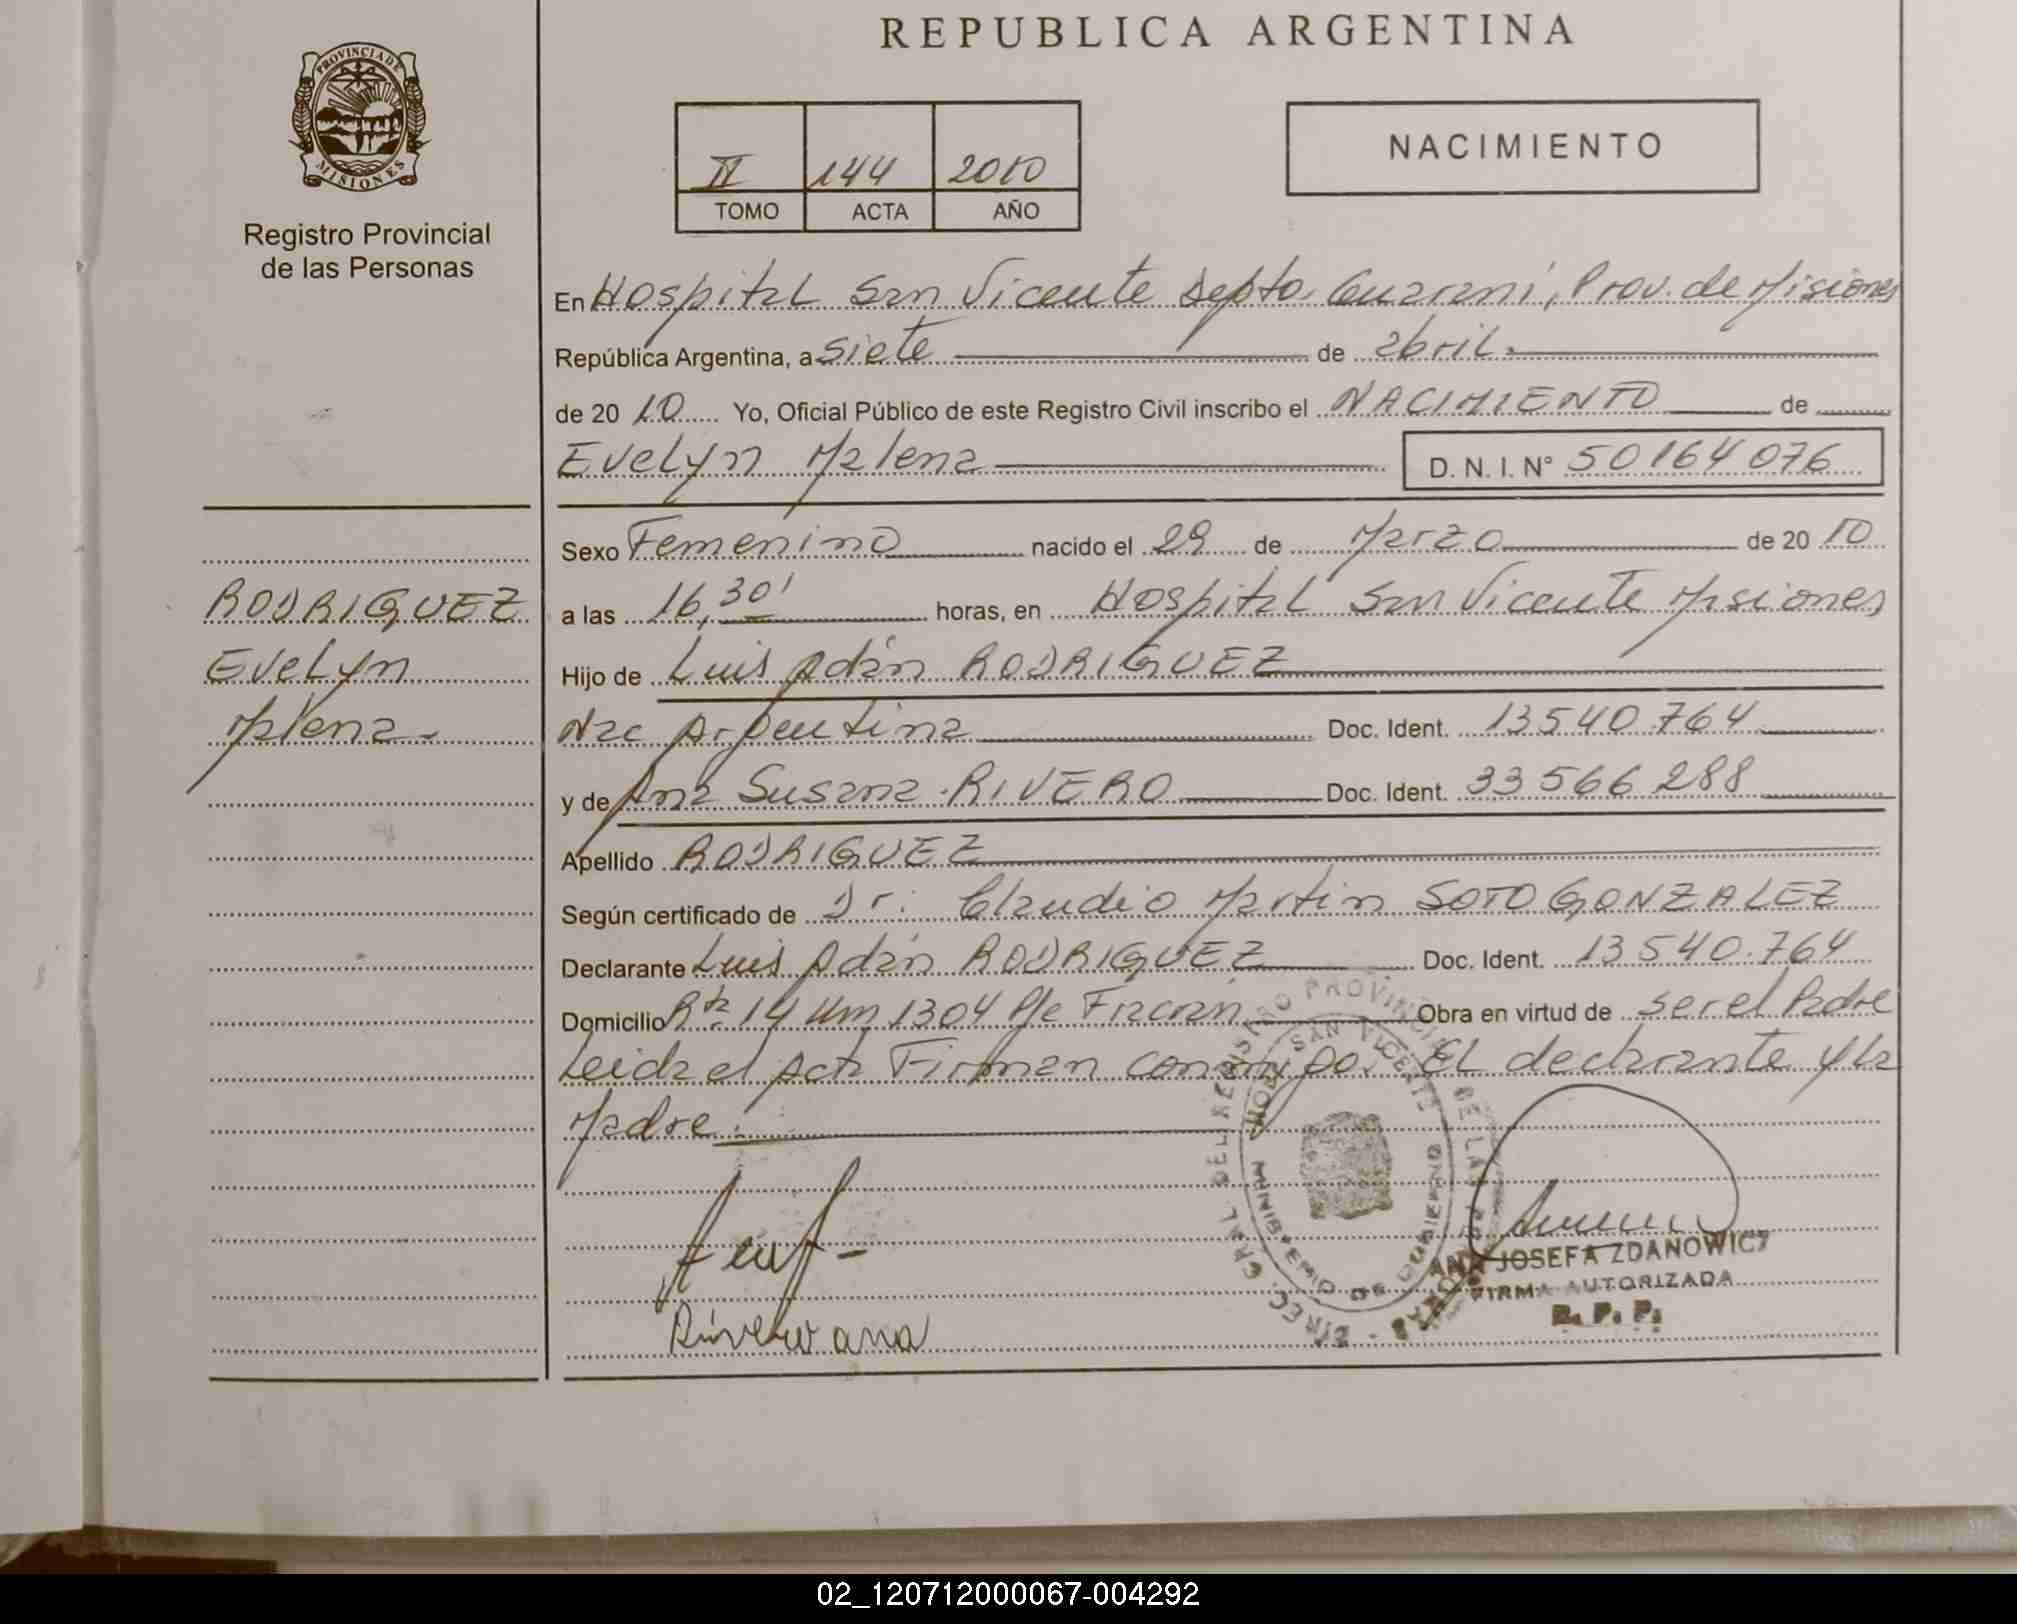 REPUBLICA ARGENTINA
PROVINCIA DE
MISIONES
Registro Provincial
de las Personas
II 144 2010
TOMO ACTA AÑO
NACIMIENTO
En Hospital San Vicente Depto. Guaraní, Prov. de Misiones
República Argentina, a siete de abril.
de 20 10 Yo, Oficial Público de este Registro Civil inscribo el NACIMIENTO de
Evelyn Malena D. N. I. N° 50164076
Sexo Femenino nacido el 29 de Marzo de 20 10
a las 16,30' horas, en Hospital San Vicente Misiones
Hijo de Luis Adán RODRIGUEZ
Nac Argentina Doc. Ident. 13540.764
y de Ana Susana RIVERO Doc. Ident. 33566288
Apellido RODRIGUEZ
Según certificado de Dr. Claudio Martin SOTO GONZALEZ
Declarante Luis Adán RODRIGUEZ Doc. Ident. 13540.764
Domicilio Rta. 14 Km 1304 Pje Fracrán Obra en virtud de ser el Padre
Leida el Acta Firman conmigo. El declarante y la
Madre.
RODRIGUEZ
Evelyn
Malena.
Rivero ana
SAN VICENTE
ANA JOSEFA ZDANOWICZ
FIRMA AUTORIZADA
R. P. P.
02_120712000067-004292